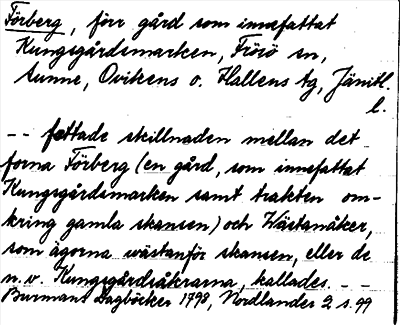 Förberg, förr gård som innefattat
Kungsgårdsmarken, Frösö sn,
Sunne, Ovikens o. Hallens tg, Jämtl.
l.
-- fattade skillnaden mellan det
forna Förberg (en gård, som innefattat
Kungsgårdsmarken samt trakten om-
kring gamla skansen) och Västanåker,
som ägorna västanför skansen, eller de
n.v. Kungsgårdsåkrarna, kallades. --
Burmans Dagböcker 1798, Nordlander 2 s. 99